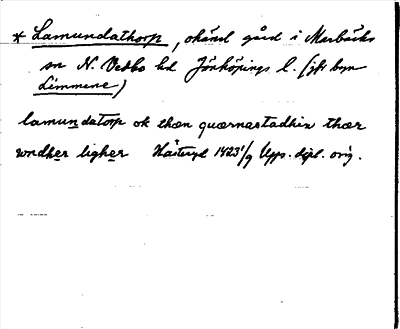 * Lamundathorp, okänd gård i Marbäcks
sn N. Vedbo hd Jönköpings l. (jfr byn
Limmene)
lamundatorp ok then quærnastadhin thær
wndher ligher Hästeryd 1423 1/9 Upps. dipl. orig.